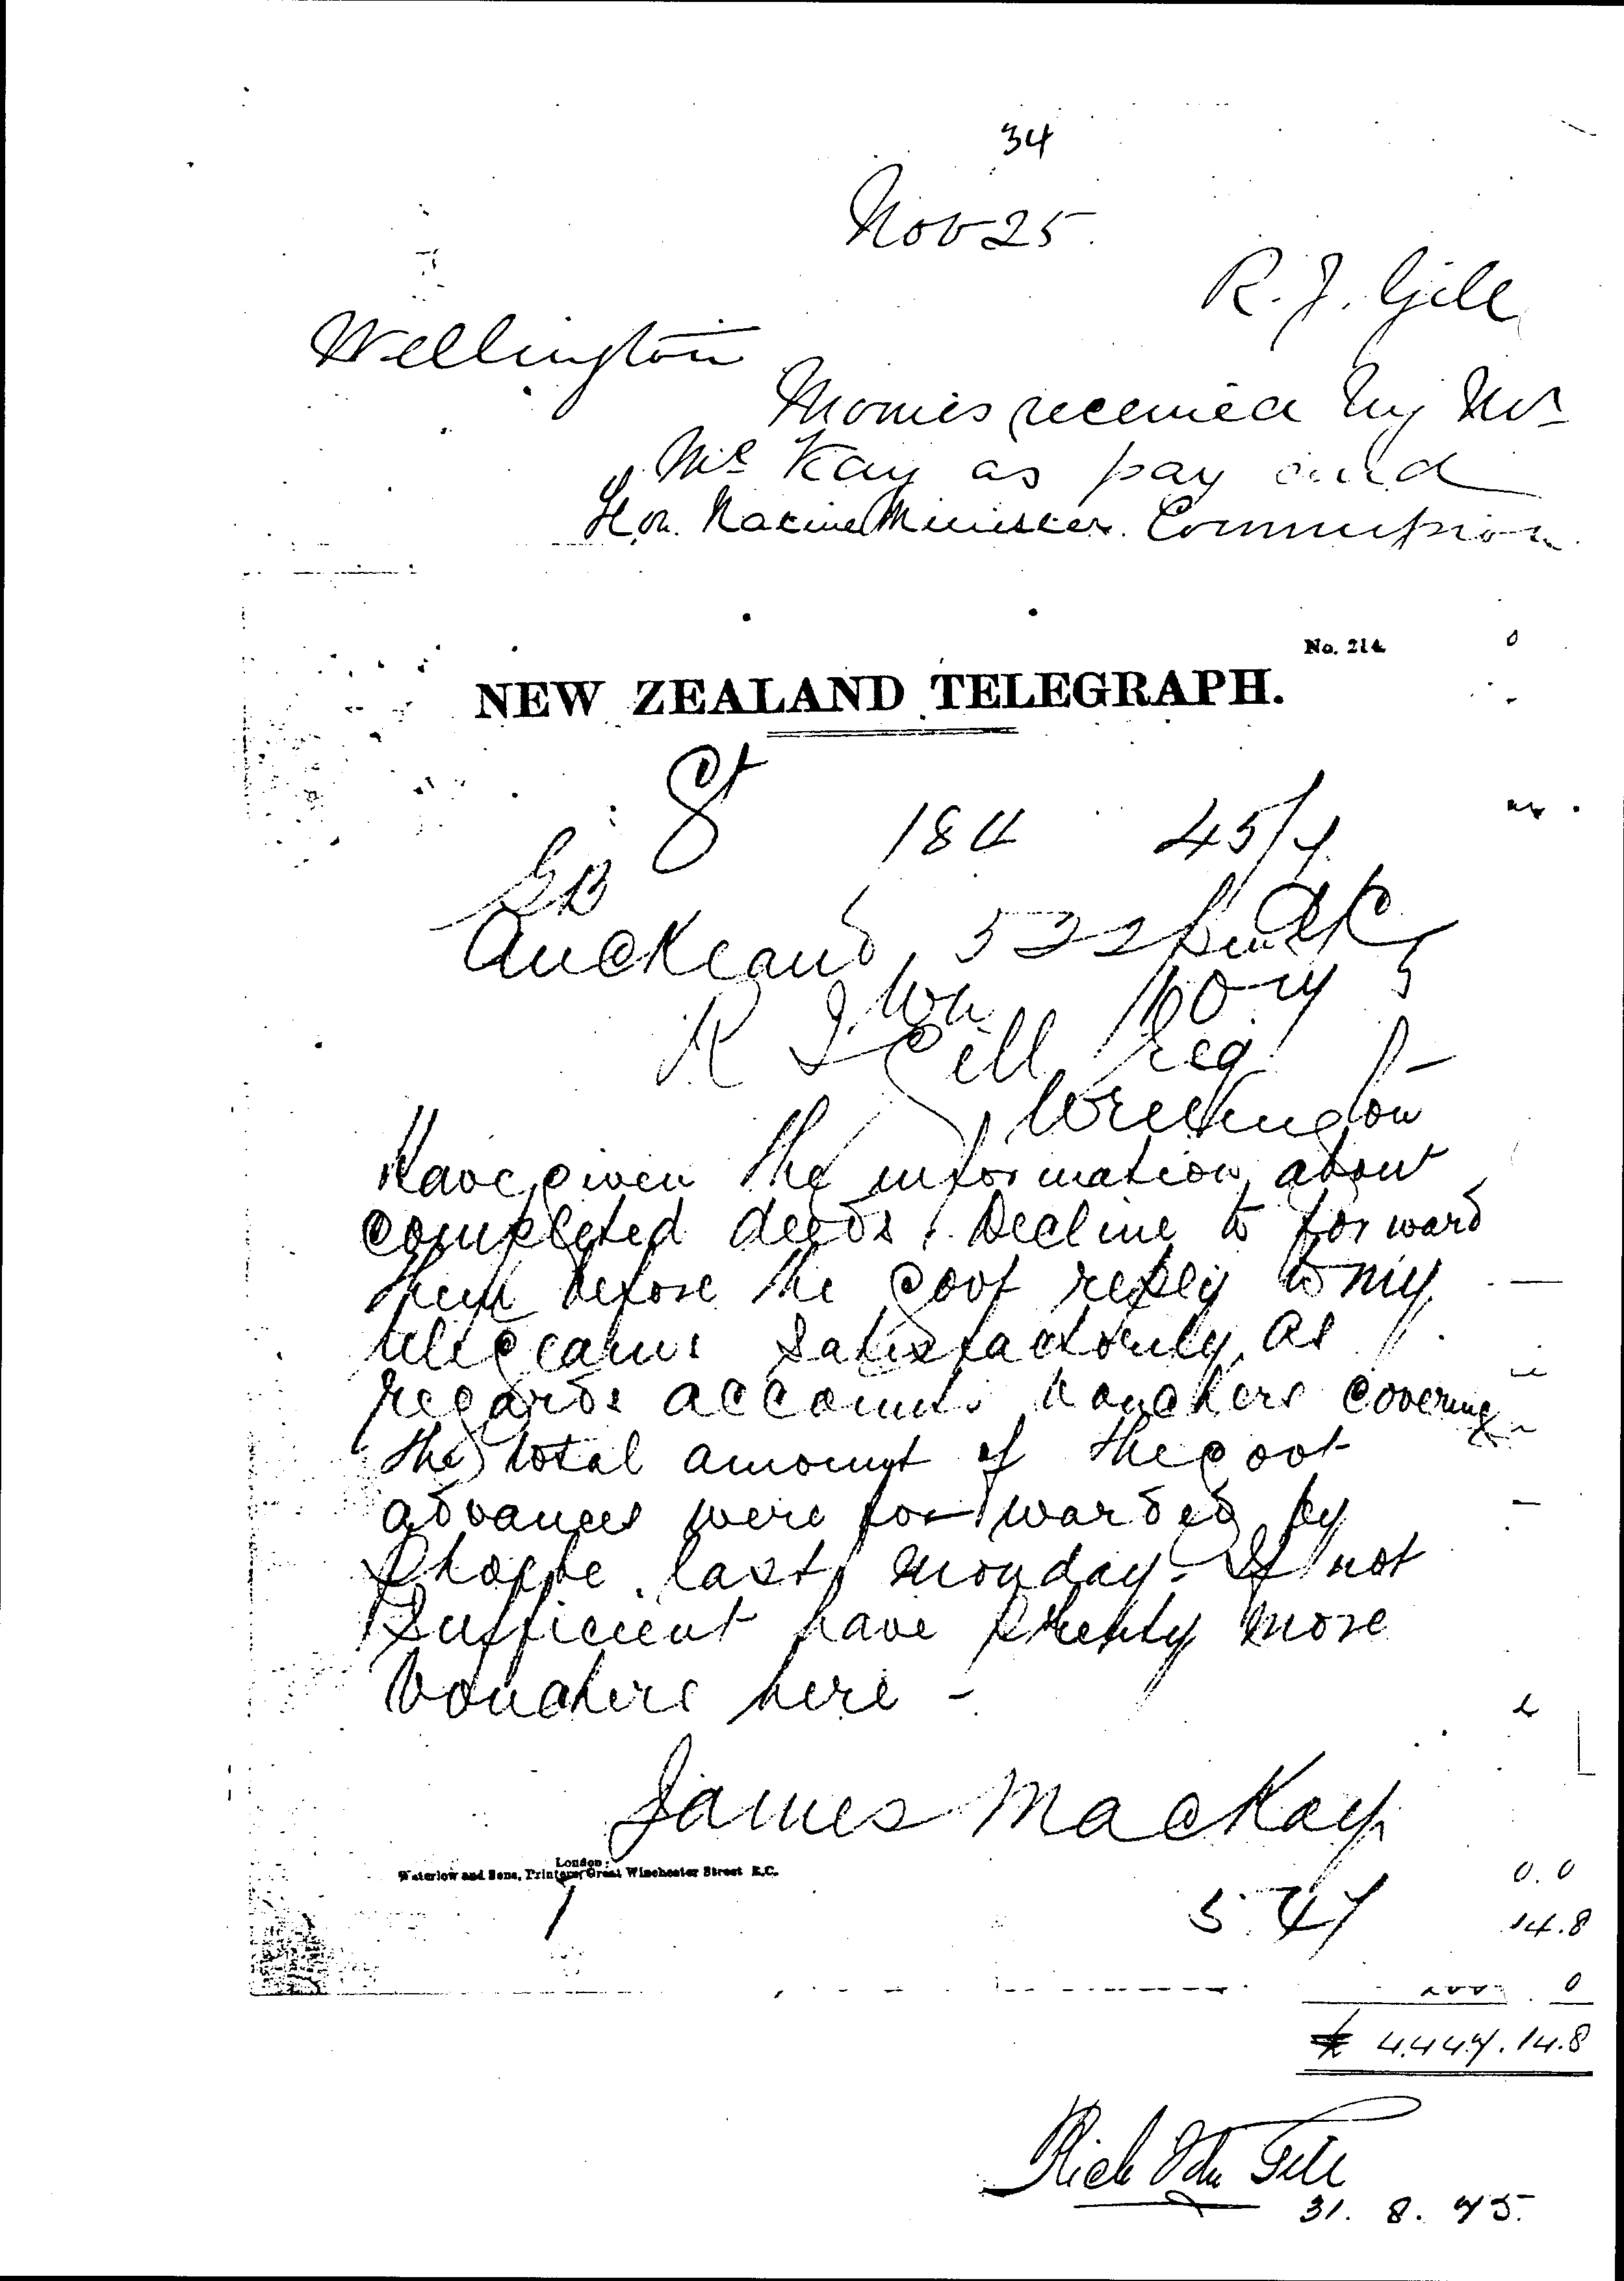 34
Nov 25.
R. J. Gill
Wellington
Monies received by Mr
McKay as pay and
Hon. Native Minister. Commission
No. 214
NEW ZEALAND TELEGRAPH.
184 45/
Auckland 522
R J Gill
Wellington
Have given the information about
completed deeds. Decline to forward
them before the Govt reply to my
telegrams satisfactorily as
regards accounts. Vouchers covering
the total amount of the Govt
advances were forwarded by
Phoebe last Monday. If not
Sufficient have plenty more
Vouchers here -
James Mackay
London:
Waterlow and Sons, Printers, Great Winchester Street E.C.
0.0
5.47
14.8
0
£ 4.447.14.8
Rich Jhn Gill
31. 8. 75.